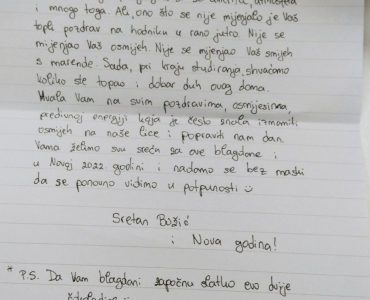 i mnogo toga. Ali, ono što se nije mijenjalo je Vaš
topli pozdrav na hodniku u rano jutro. Nije se
mijenjao Vaš osmijeh. Nije se mijenjao Vaš smijeh
s marende. Sada, pri kraju studiranja, shvaćamo
koliko ste topao i dobar duh ovog doma.
Hvala Vam na svim pozdravima, osmijesima,
predivnoj energiji koja je često znala izmamiti
osmijeh na naše lice i popraviti nam dan.
Vama želimo svu sreću za ove blagdane i
u Novoj 2022. godini i nadamo se bez maski
da se ponovno vidimo u potpunosti ☺
Sretan Božić
i Nova godina!
* P.S. Da Vam blagdani započnu slatko evo dvije